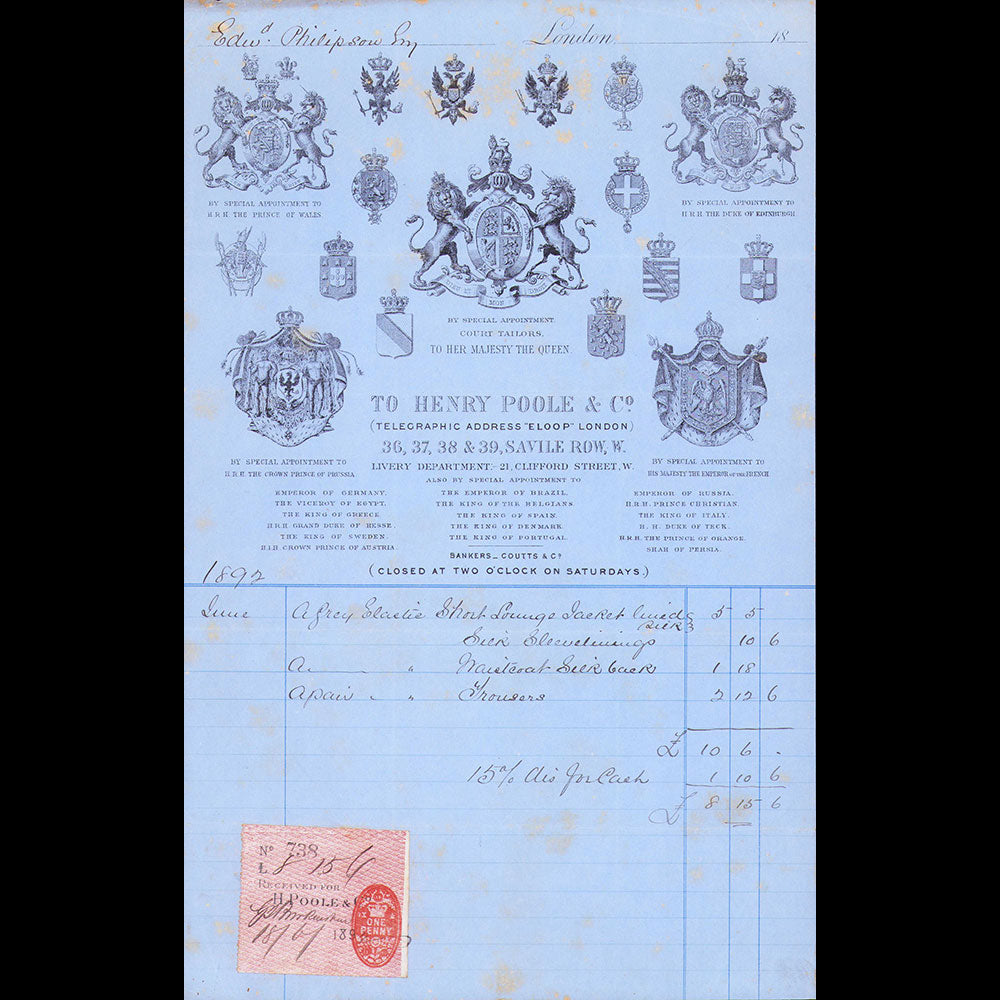 Edwd. Philipson Esq London 18
BY SPECIAL APPOINTMENT TO
H.R.H. THE PRINCE OF WALES.
BY SPECIAL APPOINTMENT TO
H.R.H. THE DUKE OF EDINBURGH
DIEU ET MON DROIT
BY SPECIAL APPOINTMENT.
COURT TAILORS,
TO HER MAJESTY THE QUEEN.
TO HENRY POOLE & Co.
(TELEGRAPHIC ADDRESS "ELOOP" LONDON)
36, 37, 38 & 39, SAVILE ROW, W.
LIVERY DEPARTMENT:- 21, CLIFFORD STREET, W.
BY SPECIAL APPOINTMENT TO
H.R.H. THE CROWN PRINCE OF PRUSSIA
BY SPECIAL APPOINTMENT TO
HIS MAJESTY THE EMPEROR OF THE FRENCH
ALSO BY SPECIAL APPOINTMENT TO
EMPEROR OF GERMANY.
THE VICEROY OF EGYPT.
THE KING OF GREECE.
H.R.H. GRAND DUKE OF HESSE.
THE KING OF SWEDEN.
H.I.H. CROWN PRINCE OF AUSTRIA.
THE EMPEROR OF BRAZIL.
THE KING OF THE BELGIANS.
THE KING OF SPAIN.
THE KING OF DENMARK.
THE KING OF PORTUGAL.
EMPEROR OF RUSSIA.
H.R.H. PRINCE CHRISTIAN.
THE KING OF ITALY.
H. H. DUKE OF TECK.
H.R.H. THE PRINCE OF ORANGE.
SHAH OF PERSIA.
BANKERS_ COUTTS & Co.
(CLOSED AT TWO O'CLOCK ON SATURDAYS.)
1892
June A Grey Elastic Short Lounge Jacket lined silk 5 5
Silk Sleevelinings 10 6
A " Waistcoat Silk back 1 18
A pair " Trousers 2 12 6
£ 10 6 -
15% dis for Cash 1 10 6
£ 8 15 6
No. 738
£ 8 15 6
RECEIVED FOR
H. POOLE & Co.
18/6/ 189
ONE
PENNY